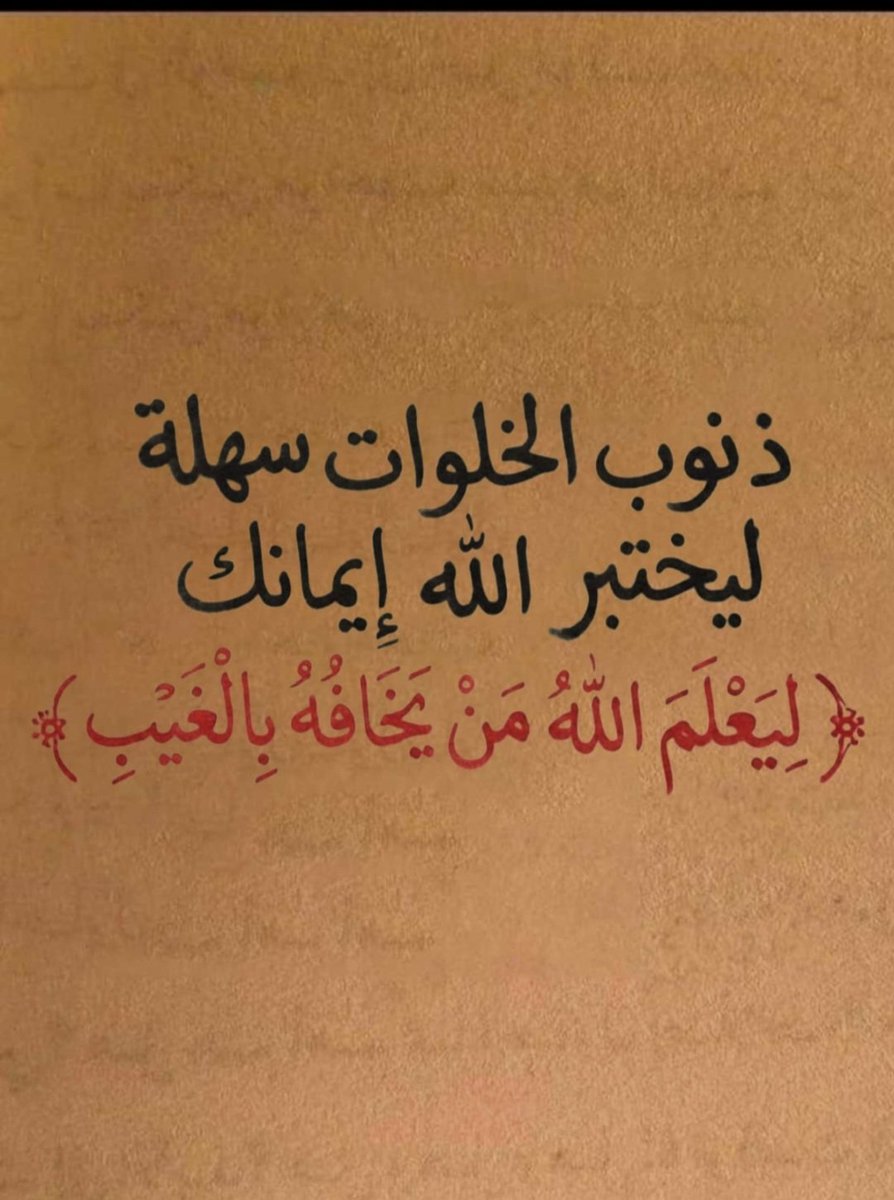 ذنوب الخلوات سهلة
ليختبر الله إيمانك
﴿لِيَعْلَمَ اللَّهُ مَنْ يَخَافُهُ بِالْغَيْبِ﴾